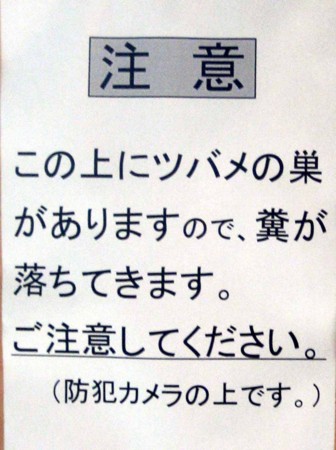 注 意
この上にツバメの巣
がありますので、糞が
落ちてきます。
ご注意してください。
（防犯カメラの上です。）